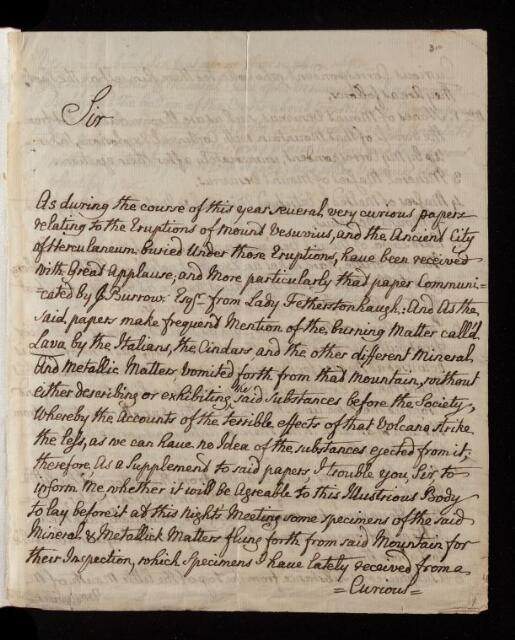 Sir
As during the course of this year several very curious papers
relating to the Eruptions of Mount Vesuvius, and the Ancient City
of Herculaneum buried Under those Eruptions, have been received
with Great Applause; and More particularly that paper Communi=
=cated by Burrow: Esqr. from Lady Fetherstonhaugh: And As the
said papers make frequent Mention of the burning Matter call'd
Lava by the Italians, the Cindars and the other different Mineral,
And Metallic Matters vomited forth from that Mountain, without
either describing or exhibiting the said Substances before the Society,
Whereby the Accounts of the terrible effects of that Volcano strike
the less, as we can have no Idea of the substances ejected from it;
therefore, As a Supplement to said papers I trouble you, Sir to
inform me, whether it will be Agreable to this Illustrious Body
To lay before it at this nights Meeting some specimens of the said
Mineral & Metallick Matters flung forth from said Mountain for
their Inspection, which specimens I have lately received from a
=Curious=